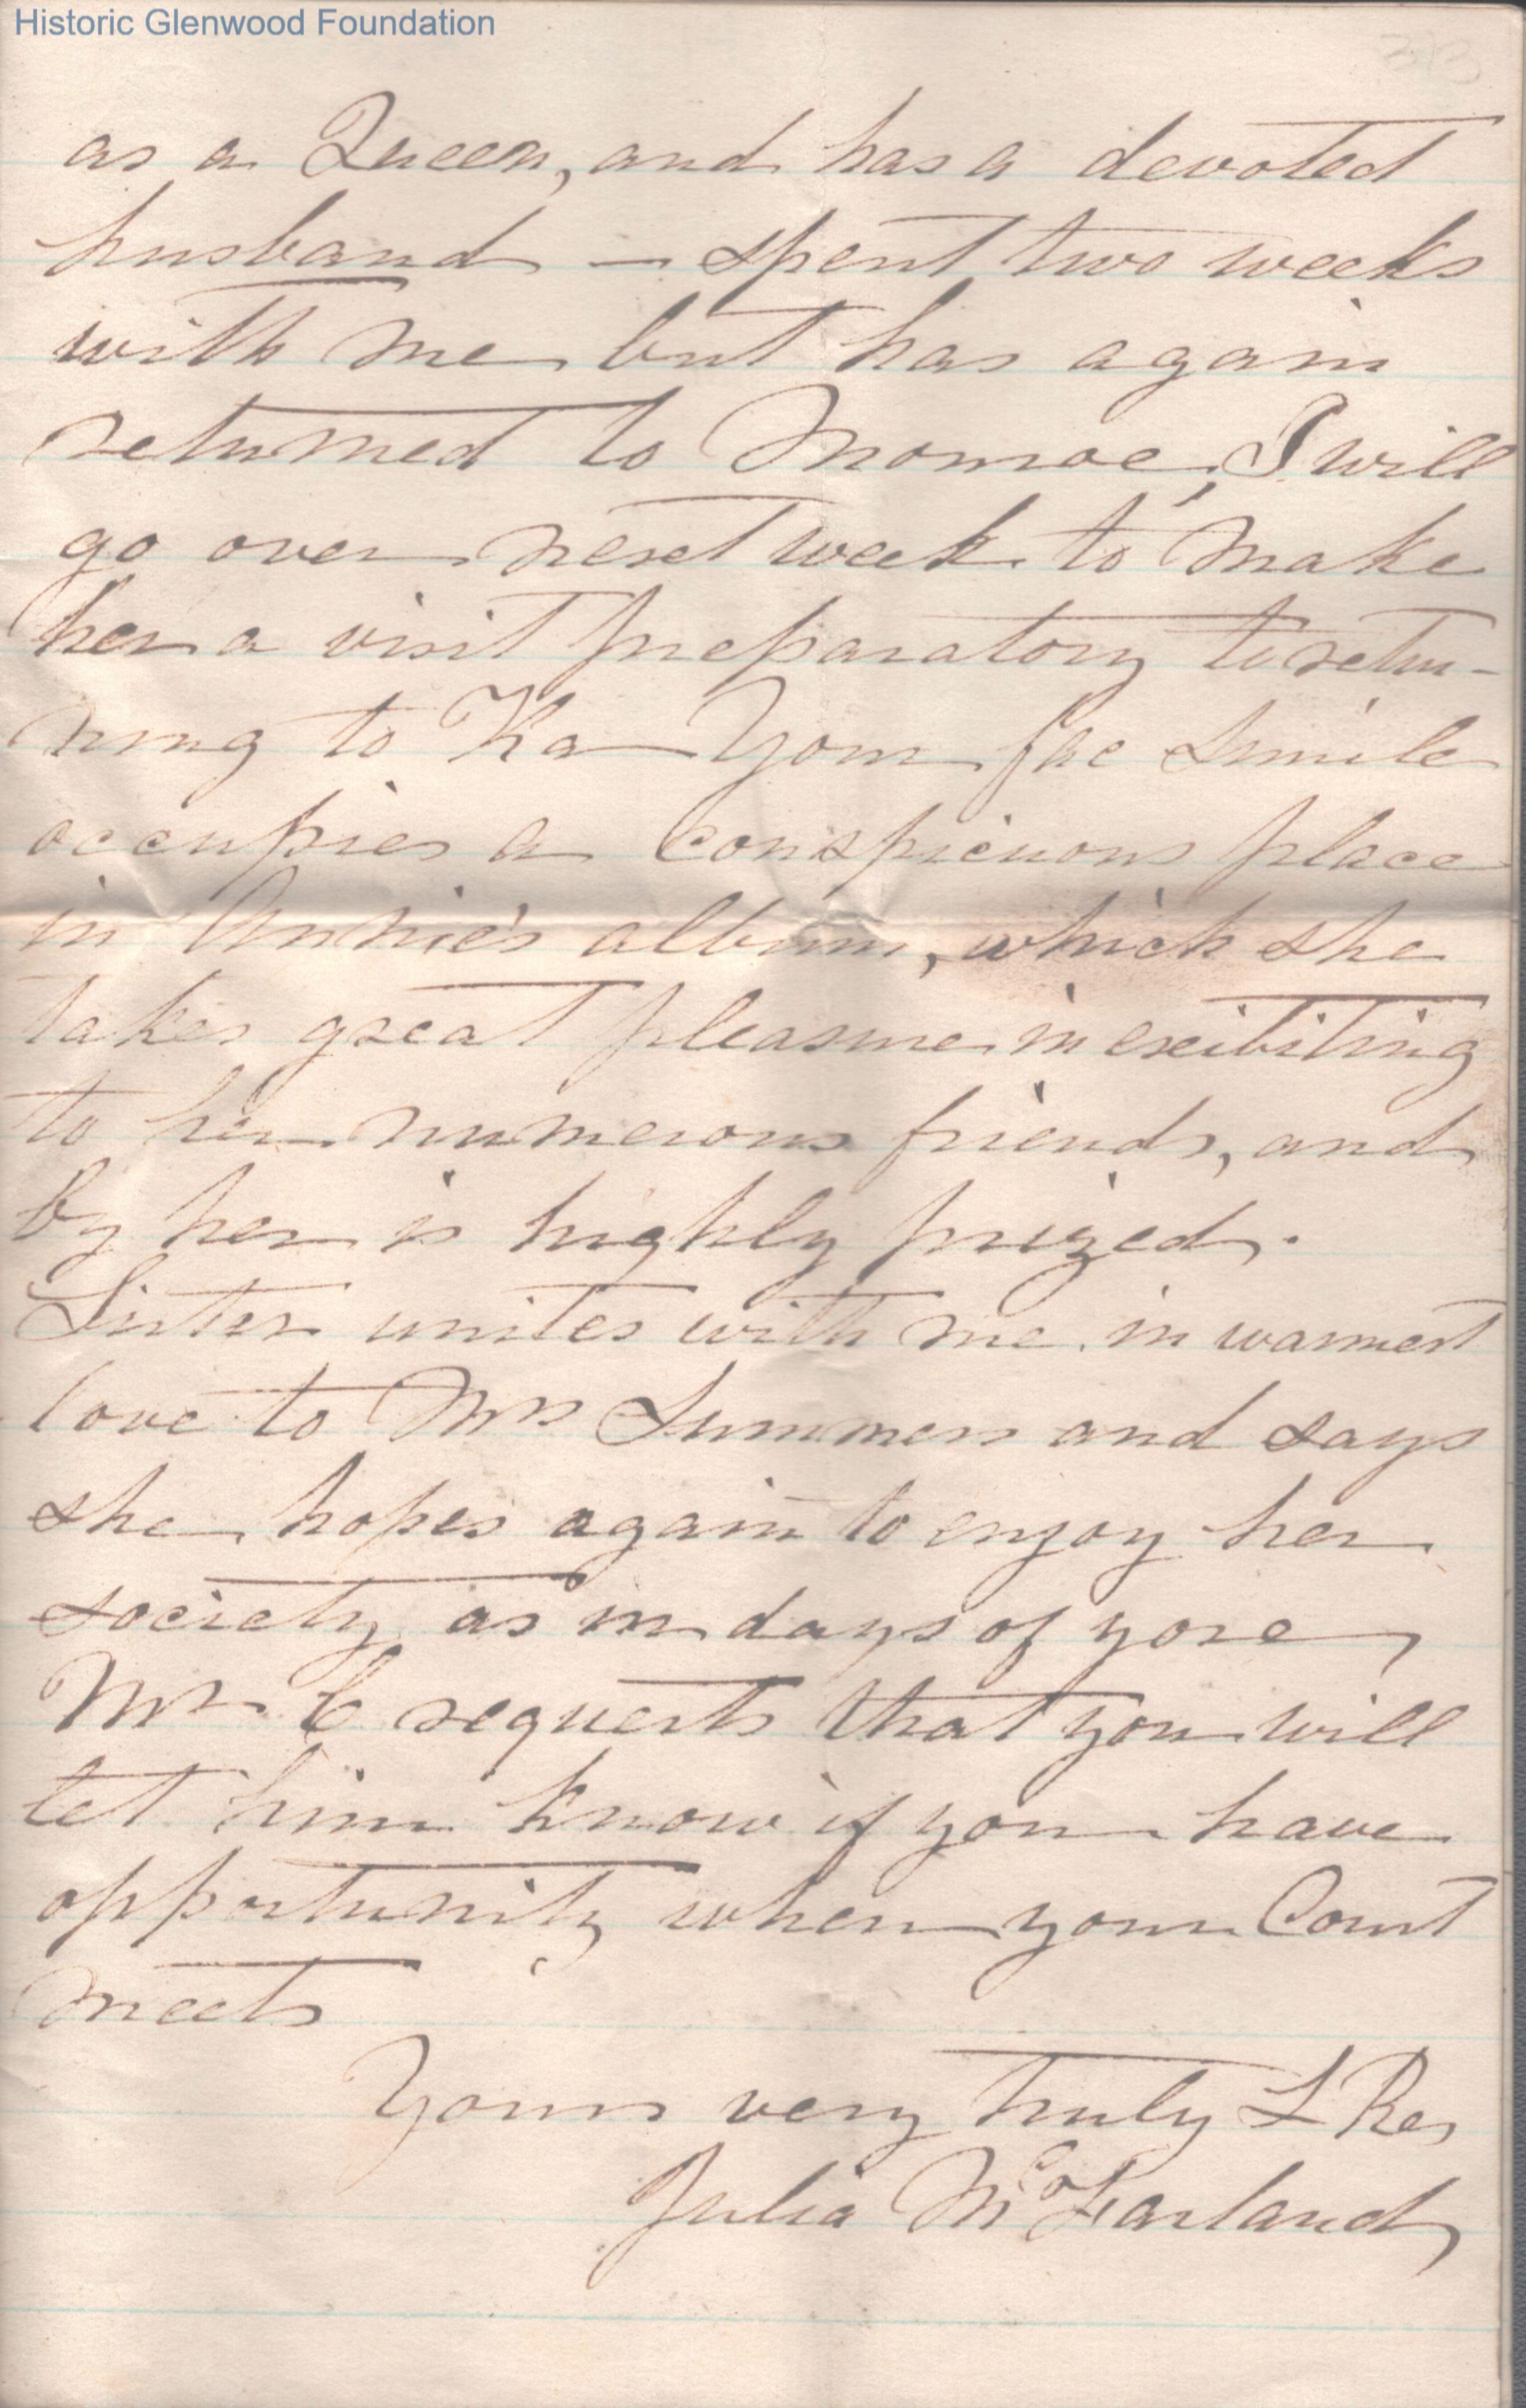 Historic Glenwood Foundation
313
as a Queen, and has a devoted
husband — spent two weeks
with me but has again
returned to Monroe, I will
go over next week to make
her a visit preparatory to retur-
ning to Ka Your fac simile
occupies a conspicuous place
in Annie's album, which she
takes great pleasure in exibiting
to her numerous friends, and
by her is highly prized.
Sister unites with me in warmest
love to Mrs Summers and says
she hopes again to enjoy her
society as in days of yore,
Mr C requests that you will
let him know if you have
opportunity when your Court
meets
Yours very truly & Res
Julia McFarland